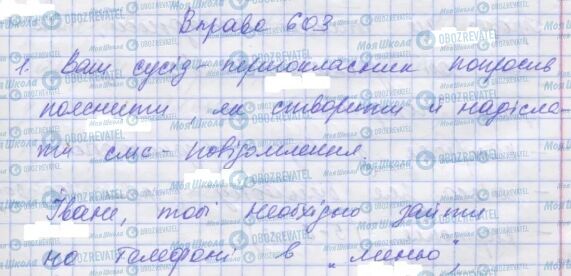 Вправа 603
1. Ваш сусід-першокласник попросив
пояснити, як створити й надісла-
ти смс-повідомлення.
Іване, тобі необхідно зайти
на телефоні в „Меню",